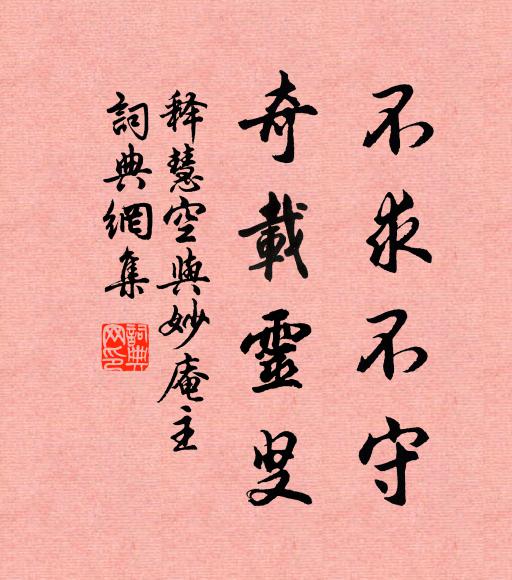 不求不守
奇載靈叟
释慧空與妙庵主
詞典網集
詞典
网印